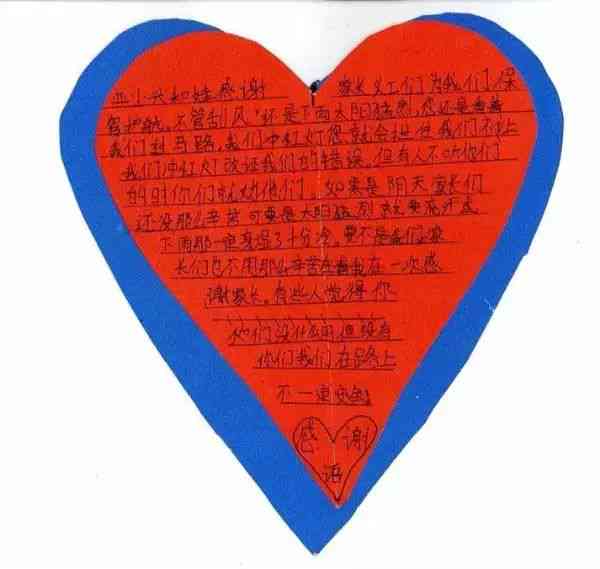 小
感谢 家长义工们为我们保
驾护航。不管刮风 还是下雨太阳猛烈,您还是
我们过马路,我们冲红灯您就会拦住我们不让
我们冲红灯改证我们的错误,但有人不听你们
的时你们就劝他们。如果是阴天家长们
还没那么辛苦可要是太阳猛烈就
下雨那一 身湿了十分冷,要不是 家
长们也不用那么辛苦 在一次感
谢家长。有些人觉得你
他们没什么用但没有
你们我们在路上
不一 安全。
感谢
语